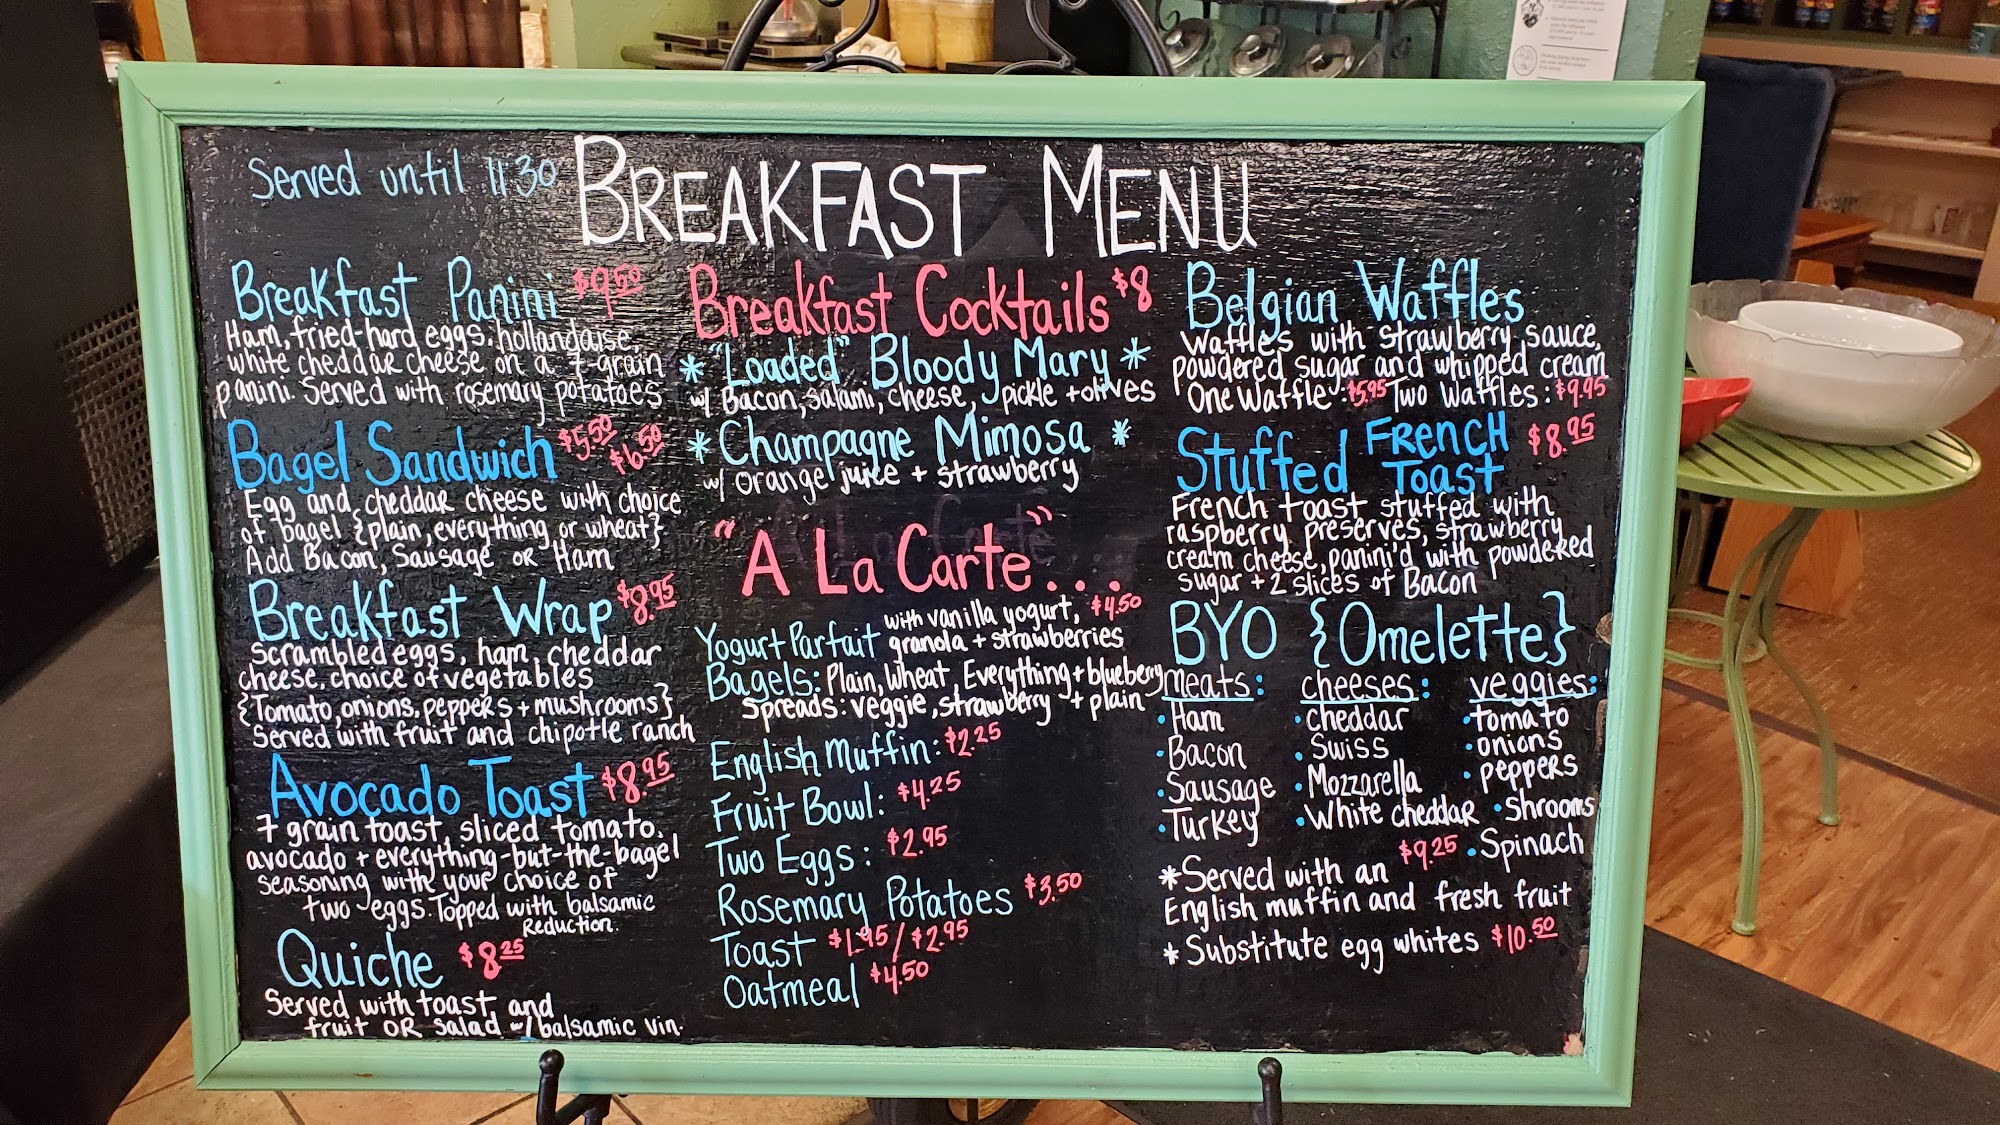 Served until 11:30
BREAKFAST MENU
Breakfast Panini $9.50
Ham, fried-hard eggs, hollandaise,
white cheddar cheese on a 7-grain
panini. Served with rosemary potatoes
Bagel Sandwich $5.50
$6.50
Egg and cheddar cheese with choice
of bagel {plain, everything, or wheat}
Add Bacon, Sausage or Ham
Breakfast Wrap $8.95
Scrambled eggs, ham, cheddar
cheese, choice of vegetables
{Tomato, onions, peppers + mushrooms}
Served with fruit and chipotle ranch
Avocado Toast $8.95
7 grain toast, sliced tomato,
avocado + everything-but-the-bagel
seasoning with your choice of
two eggs. Topped with balsamic
Reduction.
Quiche $8.25
Served with toast and
fruit OR salad w/ balsamic vin.
Breakfast Cocktails $8
* "Loaded" Bloody Mary *
w/ Bacon, salami, cheese, pickle + olives
* Champagne Mimosa *
w/ orange juice + strawberry
"A La Carte"...
Yogurt Parfait with vanilla yogurt, $4.50
granola + strawberries
Bagels: Plain, Wheat, Everything + blueberry
Spreads: veggie, strawberry + plain
English Muffin: $2.25
Fruit Bowl: $4.25
Two Eggs: $2.95
Rosemary Potatoes $3.50
Toast $1.95/$2.95
Oatmeal $4.50
Belgian Waffles
Waffles with strawberry sauce,
powdered sugar and whipped cream
One Waffle: $5.95 Two Waffles: $9.95
Stuffed French Toast $8.95
French toast stuffed with
raspberry preserves, strawberry
cream cheese, panini'd with powdered
sugar + 2 slices of Bacon
BYO {Omelette}
meats: cheeses: veggies:
• Ham • cheddar • tomato
• Bacon • Swiss • onions
• Sausage • Mozzarella • peppers
• Turkey • White cheddar • Shrooms
• Spinach
* Served with an $9.25
English muffin and fresh fruit
* Substitute egg whites $10.50